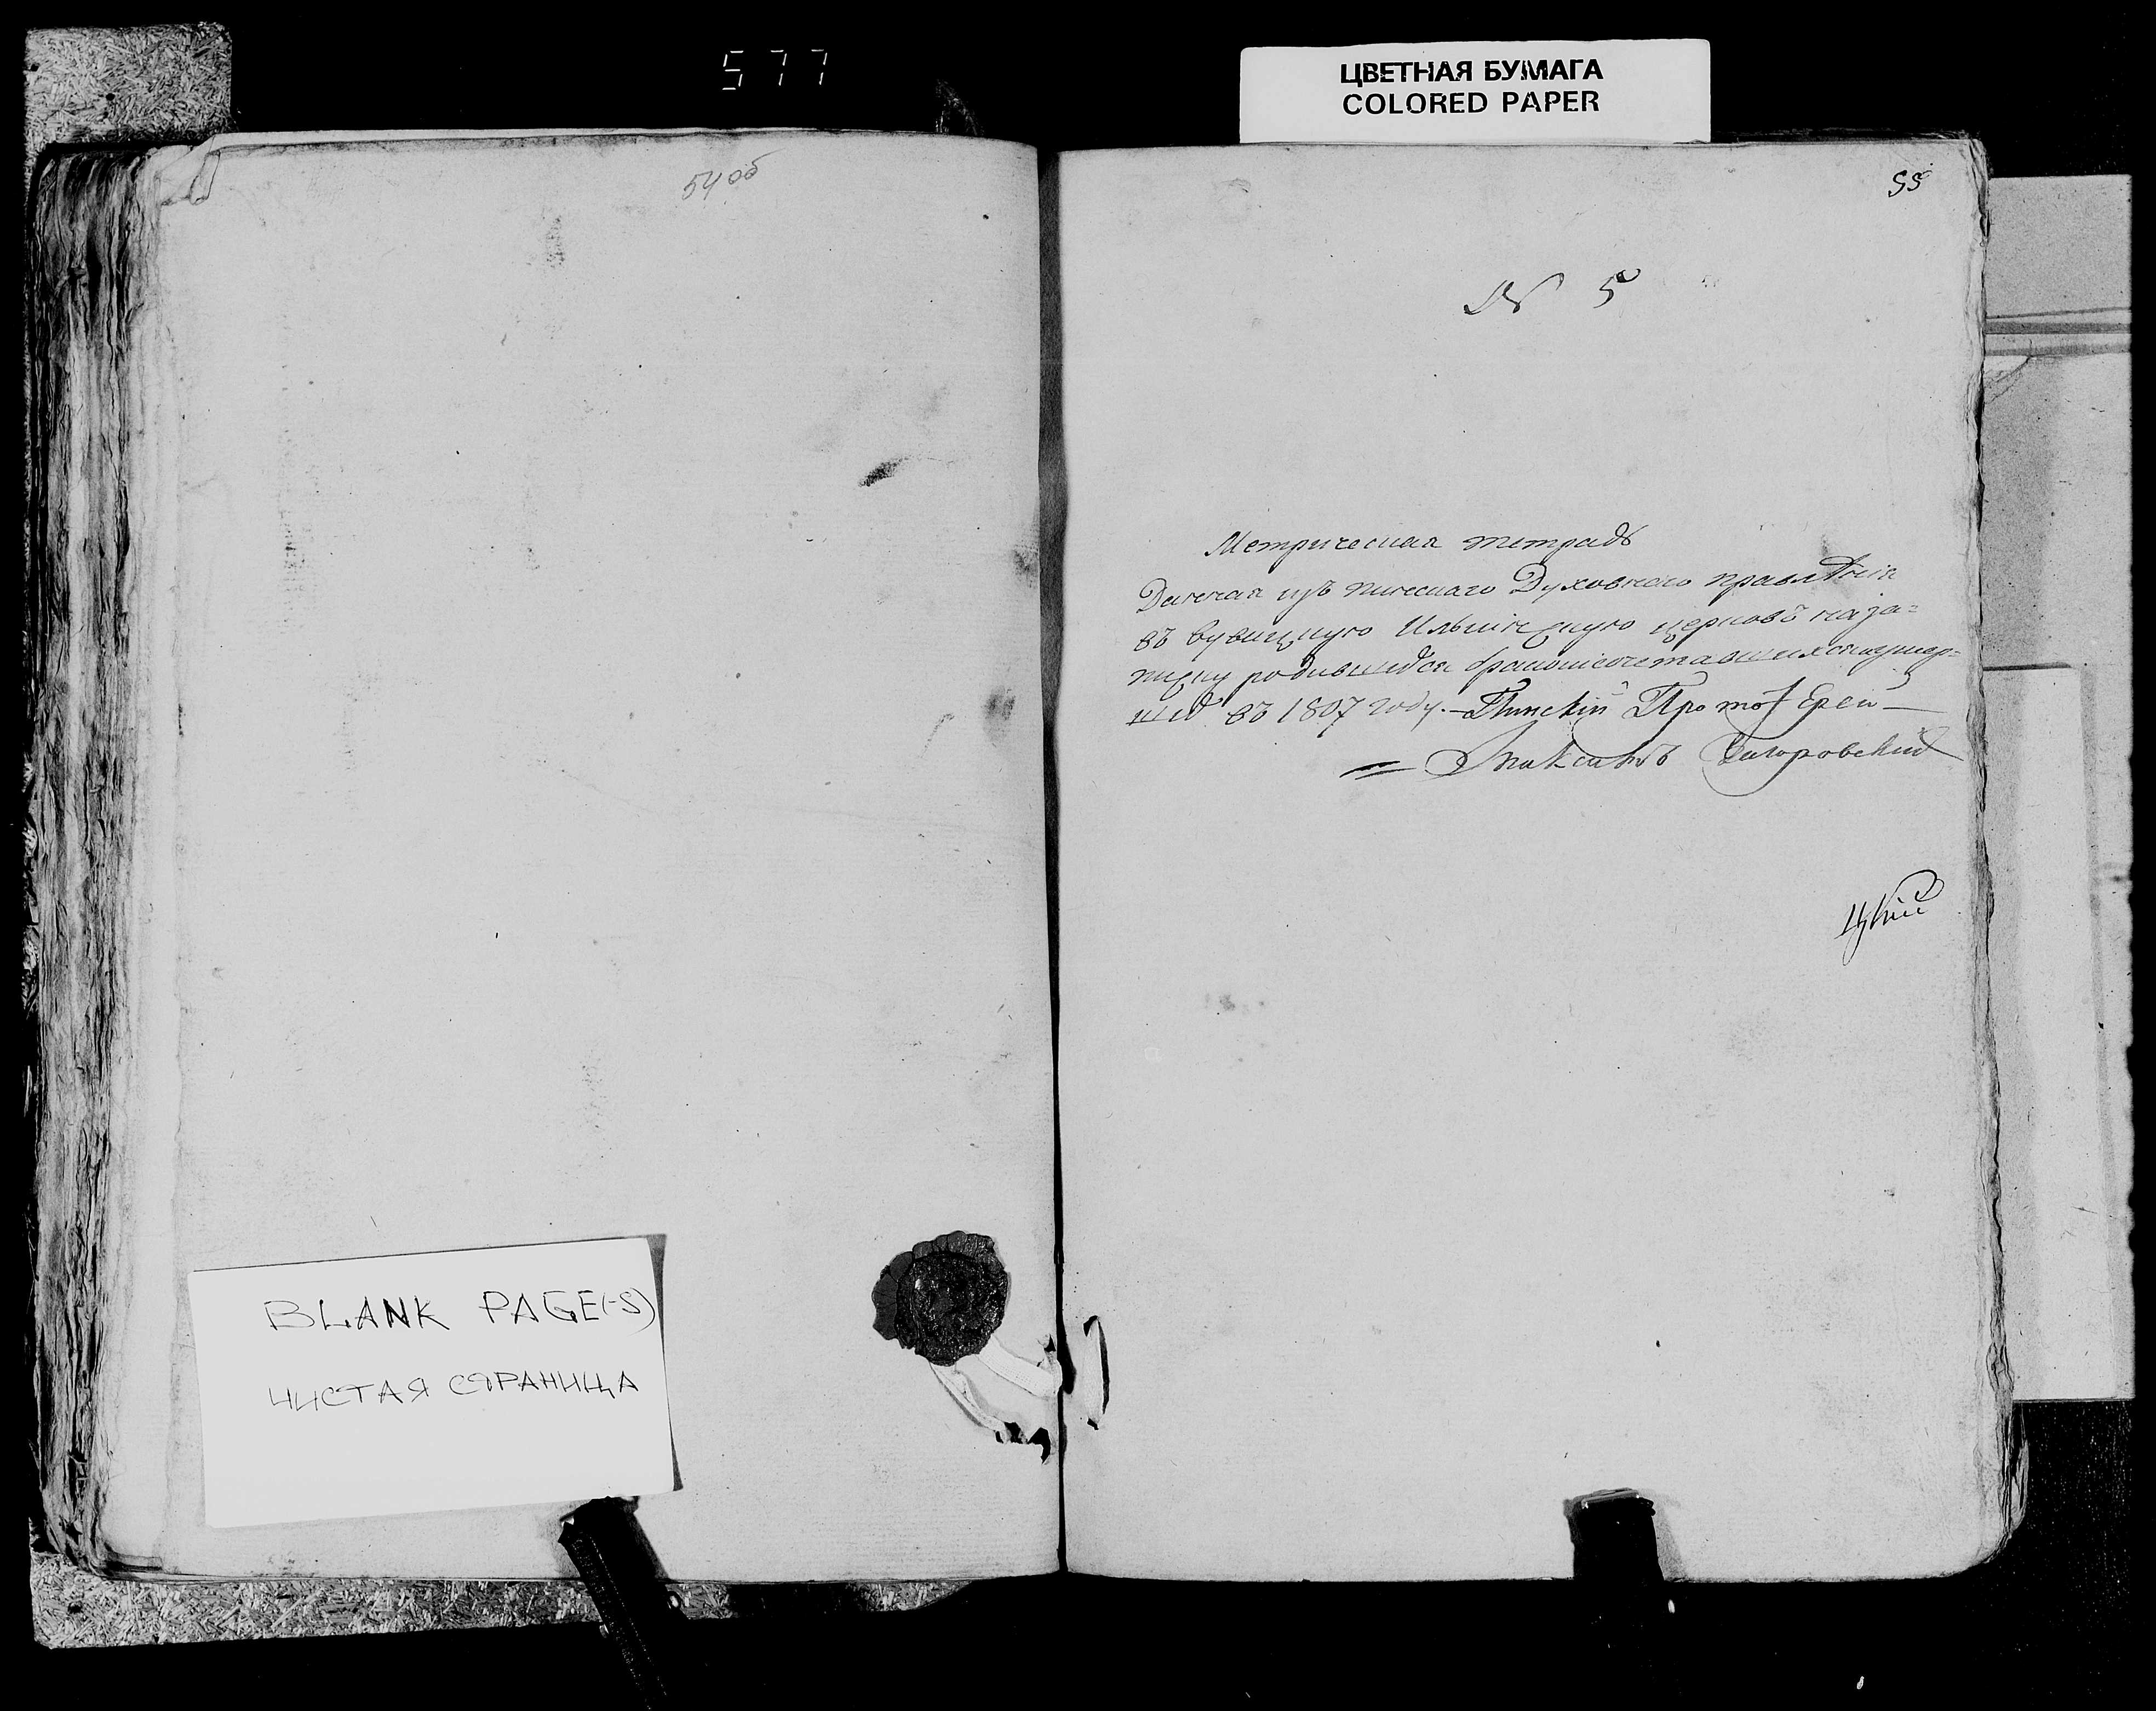 577
ЦВЕТНАЯ БУМАГА
COLORED PAPER
54 об
55
№ 5
Метрическая тетрадь
Данная изъ пинскаго Духовнаго правлѣнія
въ вувицкую Ильинскую церковь на за=
писку родившихся бракомсочетавшихся и умер=
шихъ въ 1807 году. — Пинскій Протоіерей —
= Максимъ
цкій
BLANK PAGE(-S)
ЧИСТАЯ СТРАНИЦА